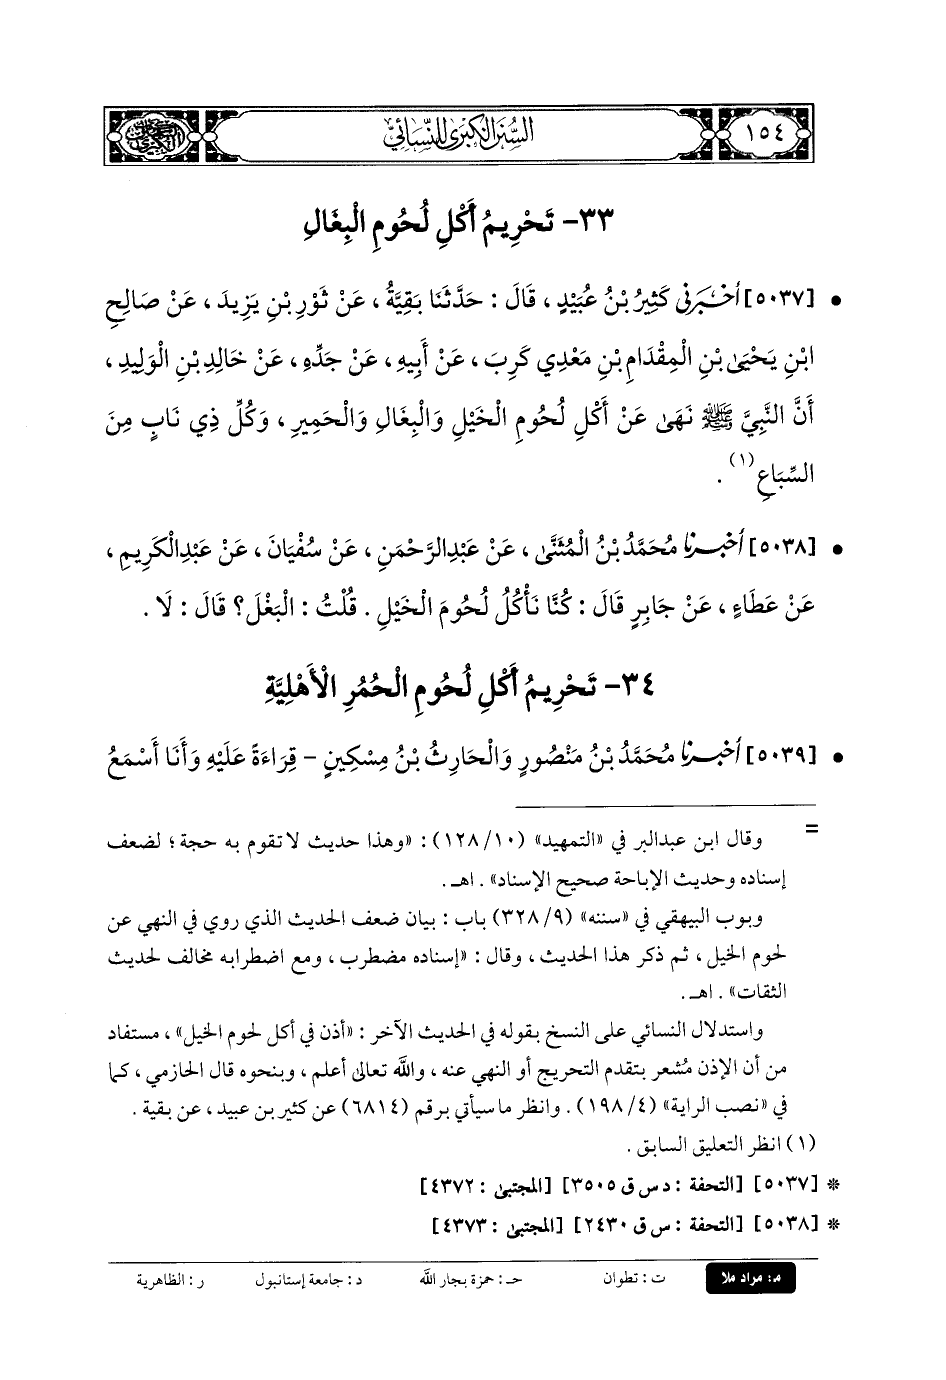 ١٥٤
السنن الكبرى للنسائي
٣٣- تَحْرِيمُ أَكْلِ لُحُومِ الْبِغَالِ
• [٥٠٣٧] أَخْبَرَنِي كَثِيرُ بْنُ عُبَيْدٍ ، قَالَ : حَدَّثَنَا بَقِيَّةُ ، عَنْ ثَوْرِ بْنِ يَزِيدَ ، عَنْ صَالِحِ
ابْنِ يَحْيَىٰ بْنِ الْمِقْدَامِ بْنِ مَعْدِي كَرِبَ ، عَنْ أَبِيهِ ، عَنْ جَدِّهِ ، عَنْ خَالِدِ بْنِ الْوَلِيدِ ،
أَنَّ النَّبِيَّ ﷺ نَهَىٰ عَنْ أَكْلِ لُحُومِ الْخَيْلِ وَالْبِغَالِ وَالْحَمِيرِ ، وَكُلِّ ذِي نَابٍ مِنَ
السِّبَاعِ (١) .
• [٥٠٣٨] أَخْبَرَنَا مُحَمَّدُ بْنُ الْمُثَنَّىٰ ، عَنْ عَبْدِالرَّحْمَنِ ، عَنْ سُفْيَانَ ، عَنْ عَبْدِالْكَرِيمِ ،
عَنْ عَطَاءٍ ، عَنْ جَابِرٍ قَالَ : كُنَّا نَأْكُلُ لُحُومَ الْخَيْلِ . قُلْتُ : الْبَغْلَ؟ قَالَ : لَا .
٣٤- تَحْرِيمُ أَكْلِ لُحُومِ الْحُمُرِ الْأَهْلِيَّةِ
• [٥٠٣٩] أَخْبَرَنَا مُحَمَّدُ بْنُ مَنْصُورٍ وَالْحَارِثُ بْنُ مِسْكِينٍ - قِرَاءَةً عَلَيْهِ وَأَنَا أَسْمَعُ
= وقال ابن عبدالبر في «التمهيد» (١٠/ ١٢٨) : «وهذا حديث لا تقوم به حجة ؛ لضعف
إسناده وحديث الإباحة صحيح الإسناد» . اهـ .
وبوب البيهقي في «سننه» (٩/ ٣٢٨) باب : بيان ضعف الحديث الذي روي في النهي عن
لحوم الخيل ، ثم ذكر هذا الحديث ، وقال : «إسناده مضطرب ، ومع اضطرابه مخالف لحديث
الثقات» . اهـ .
واستدلال النسائي على النسخ بقوله في الحديث الآخر : «أذن في أكل لحوم الخيل» ، مستفاد
من أن الإذن مُشعر بتقدم التحريج أو النهي عنه ، والله تعالى أعلم ، وبنحوه قال الحازمي ، كما
في «نصب الراية» (٤/ ١٩٨) . وانظر ما سيأتي برقم (٦٨١٤) عن كثير بن عبيد ، عن بقية .
(١) انظر التعليق السابق .
* [٥٠٣٧] [التحفة : د س ق ٣٥٠٥] [المجتبىٰ : ٤٣٧٢]
* [٥٠٣٨] [التحفة : س ق ٢٤٣٠] [المجتبىٰ : ٤٣٧٣]
م: مراد ملا ت : تطوان حـ : حمزة بجار الله د : جامعة إستانبول ر : الظاهرية